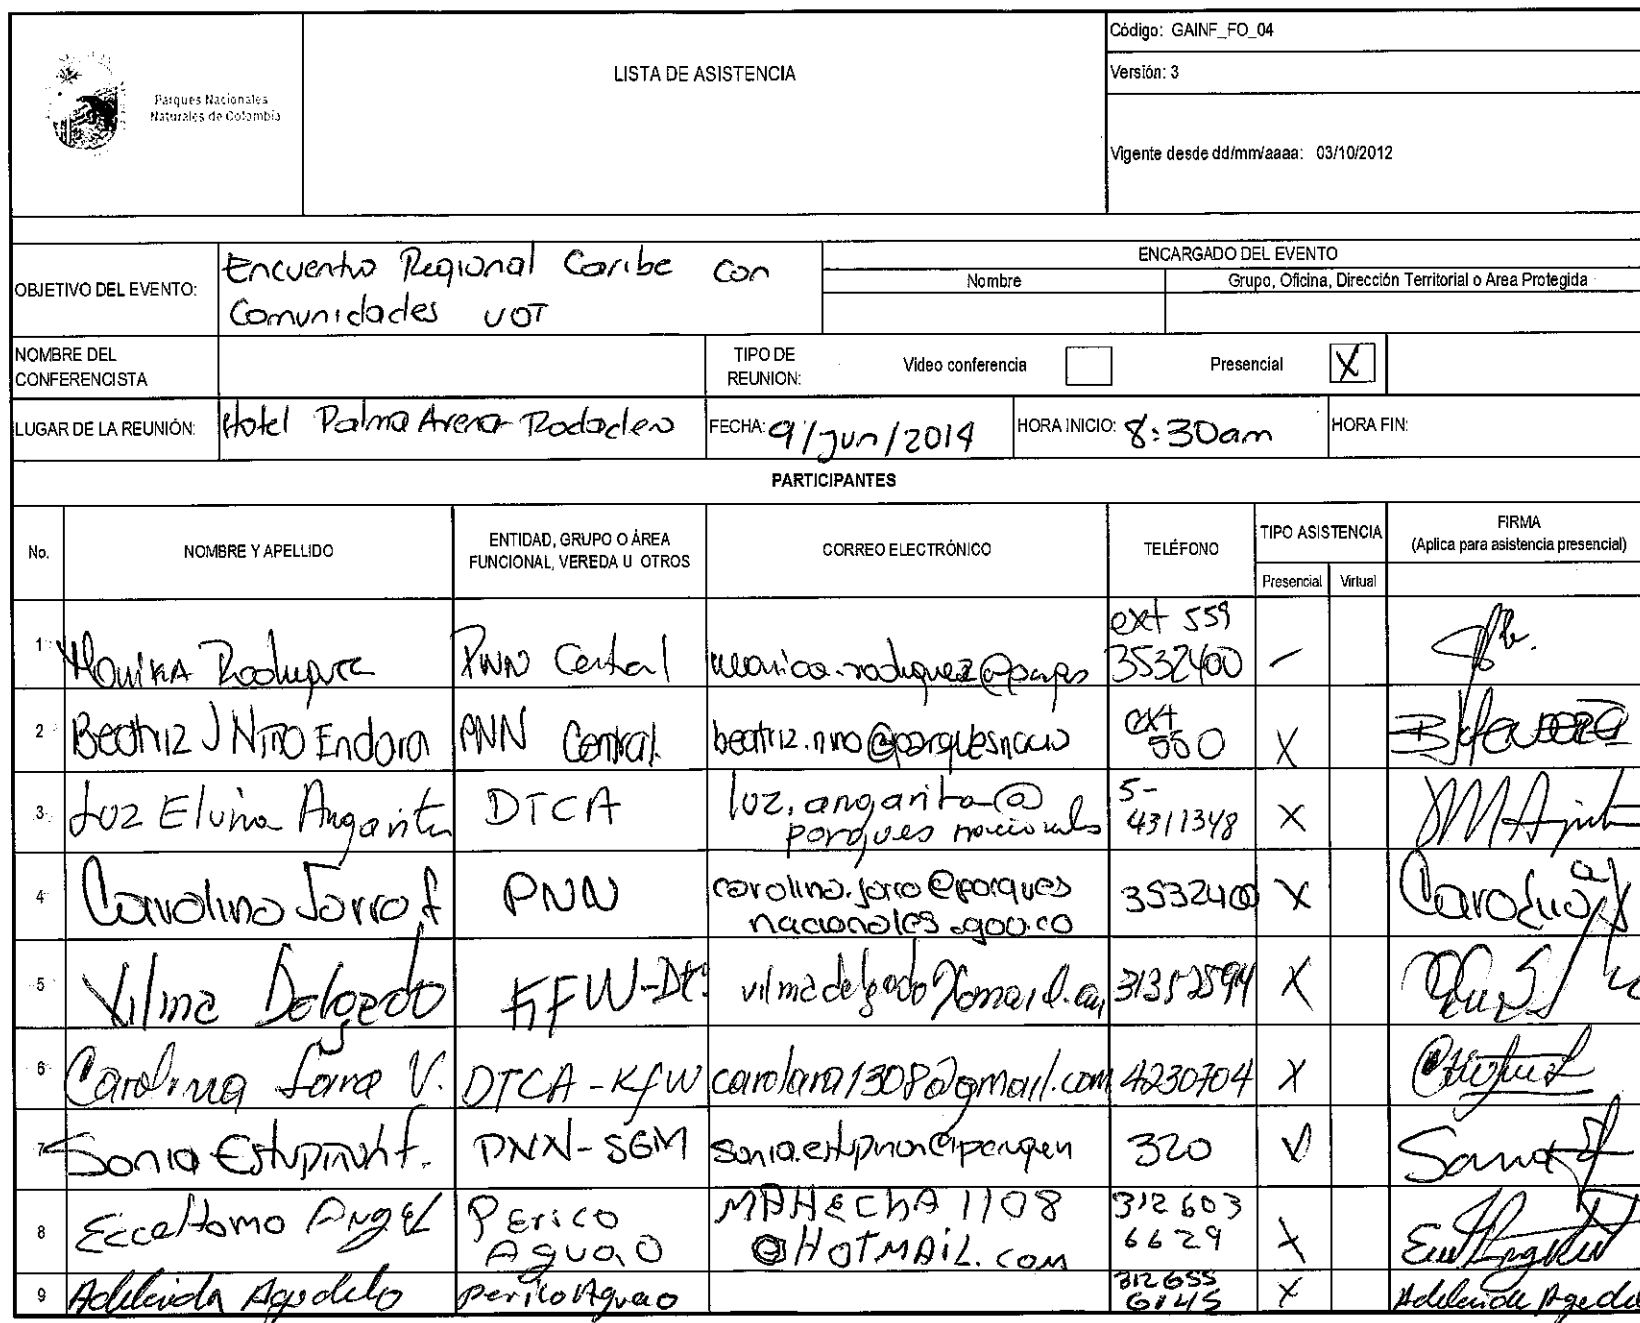 Parques Nacionales
Naturales de Colombia
LISTA DE ASISTENCIA
Código: GAINF_FO_04
Versión: 3
Vigente desde dd/mm/aaaa: 03/10/2012
OBJETIVO DEL EVENTO:
Encuentro Regional Caribe con
Comunidades UOT
ENCARGADO DEL EVENTO
Nombre
Grupo, Oficina, Dirección Territorial o Area Protegida
NOMBRE DEL
CONFERENCISTA
TIPO DE
REUNION:
Video conferencia
Presencial X
LUGAR DE LA REUNIÓN: Hotel Palma Arena Rodadero
FECHA: 9/Jun/2014
HORA INICIO: 8:30am
HORA FIN:
PARTICIPANTES
No.
NOMBRE Y APELLIDO
ENTIDAD, GRUPO O ÁREA
FUNCIONAL, VEREDA U OTROS
CORREO ELECTRÓNICO
TELÉFONO
TIPO ASISTENCIA
Presencial Virtual
FIRMA
(Aplica para asistencia presencial)
1 Monika Rodriguez PNN Central monica.rodriguez@parques ext 559
3532400 -
2 Beatriz J Niño Endara PNN Central. beatriz.nino@parquesnacio ext
550 X
3 Luz Elvira Angarita DTCA luz.angarita@
parques nacionales 5-
4311348 X
4 Carolina Jarro f PNN carolina.jarro@parques
nacionales.gov.co 3532400 X Carolina
5 Vilma Delgado KFW-Dt vilmadelgado 31352594 X
6 Carolina Lara V. DTCA-KfW carolara1308@gmail.com 4230704 X
7 Sonia Estupiñan f. PNN-SGM sonia.estupinan@parquen 320 V Sonia
8 EcceHomo Angel Perico
Aguao MAHECHA1108
@HOTMAIL.com 312 603
6629 X
9 Adeleida Agudelo perico Aguao 312 655
6145 X Adeleida Agudelo